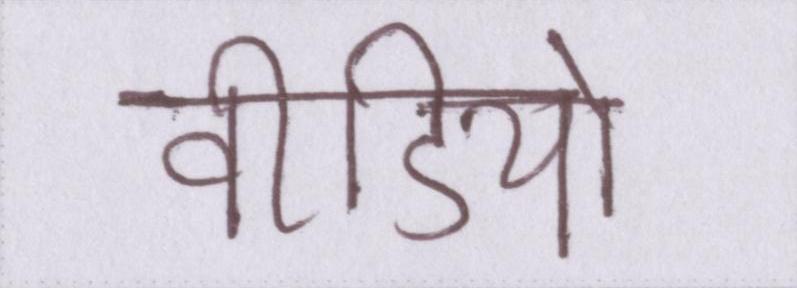 वीडियो